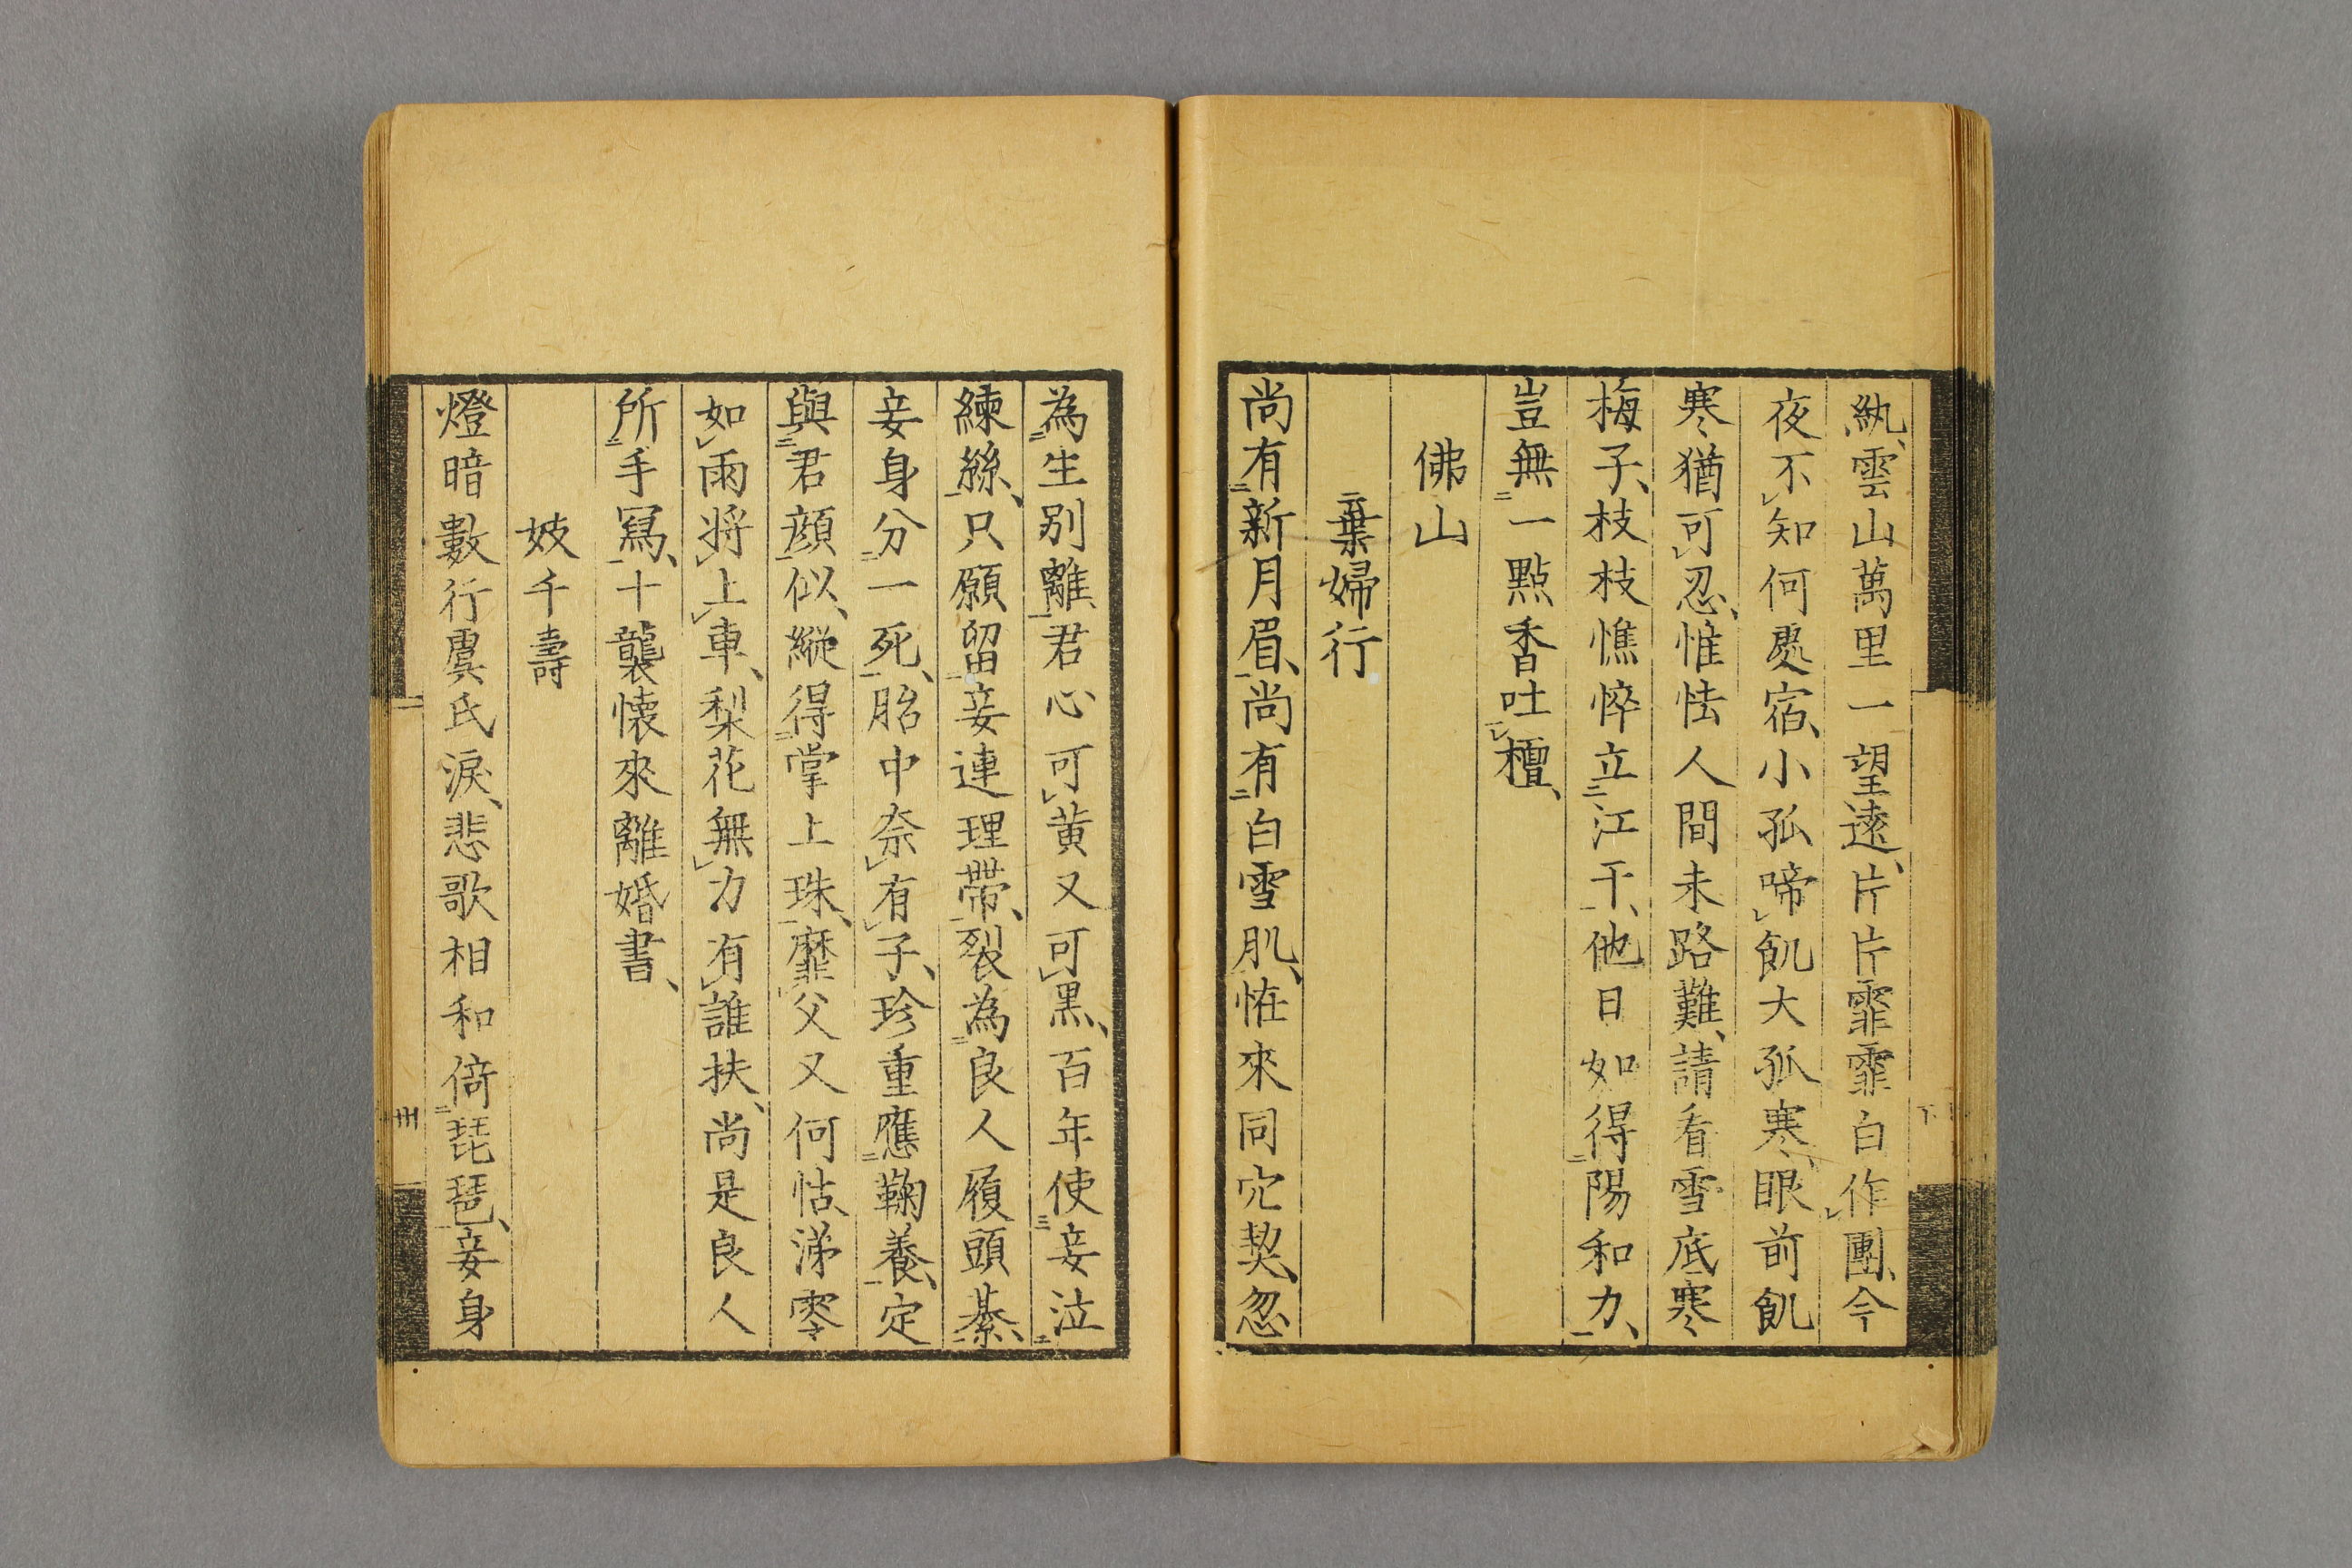 紈、雲山萬里一望遠、片片霏霏白作團、今
夜不知何處宿、小孤啼飢大孤寒、眼前飢
寒猶可忍、惟怯人間未路難、請看雪底寒
梅子、枝枝憔悴立江干、他日如得陽和力、
豈無一點香吐檀、
佛山
棄婦行
尚有新月眉、尚有白雪肌、恠來同穴契、忽
為生別離君心可黃又可黒、百年使妾泣
練絲、只願留妾連理帶、裂為良人履頭綦、
妾身分一死、胎中奈有子、珍重應鞠養、定
與君顔似、縱得掌上珠、靡父又何怙涕零
如雨將上車、梨花無力有誰扶、尚是良人
所手寫、十襲懐來離婚書、
妓千壽
燈暗數行虞氏淚、悲歌相和倚琵琶、妾身
下
卅